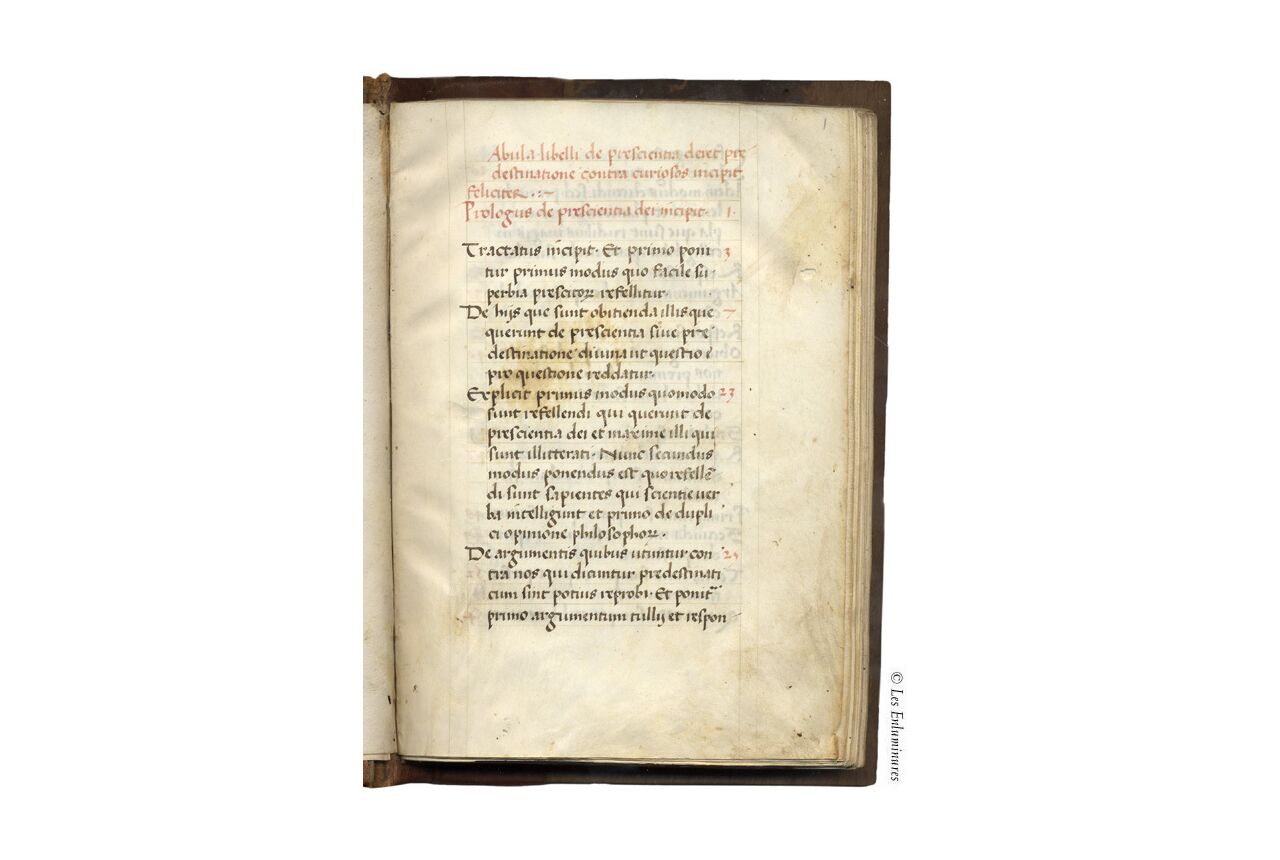 Abula libelli de prescientia dei et pre
destinatione contra curiosos incipit
feliciter
Prologus de prescientia dei incipit. 1.
Tractatus incipit. Et primo poni 3
tur primus modus quo facile su
perbia prescitoꝝ refellitur.
De hijs que sunt obitienda illis que 7
querunt de prescientia siue pre
destinatione diuina ut questio
pro questione reddatur.
Explicit primus modus quomodo 23
sunt refellendi qui querunt de
prescientia dei et maxime illi qui
sunt illitterati. Nunc secundus
modus ponendus est quo refellē
di sunt sapientes qui scientie uer
ba intelligunt et primo de dupli
ci opinione philosophoꝝ.
De argumentis quibus utuntur con
tra nos qui dicuntur predestinati
cum sint potius reprobi. Et ponit
primo argumentum tullij et respon
1
© Les Enluminures